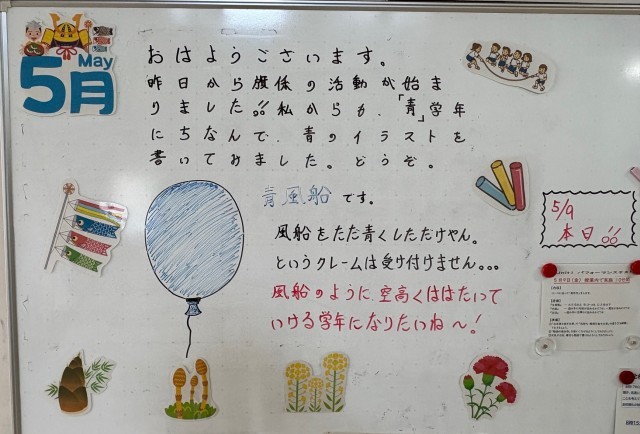 May
5月
おはようございます。
昨日から旗係の活動が始ま
りました!!私からも、「青」学年
にちなんで、青のイラストを
書いてみました。どうぞ。
青風船です。
風船をただ青くしただけやん。
というクレームは受け付けません...
風船のように、空高くはばたいて
いける学年になりたいね〜!
5/9
本日!!